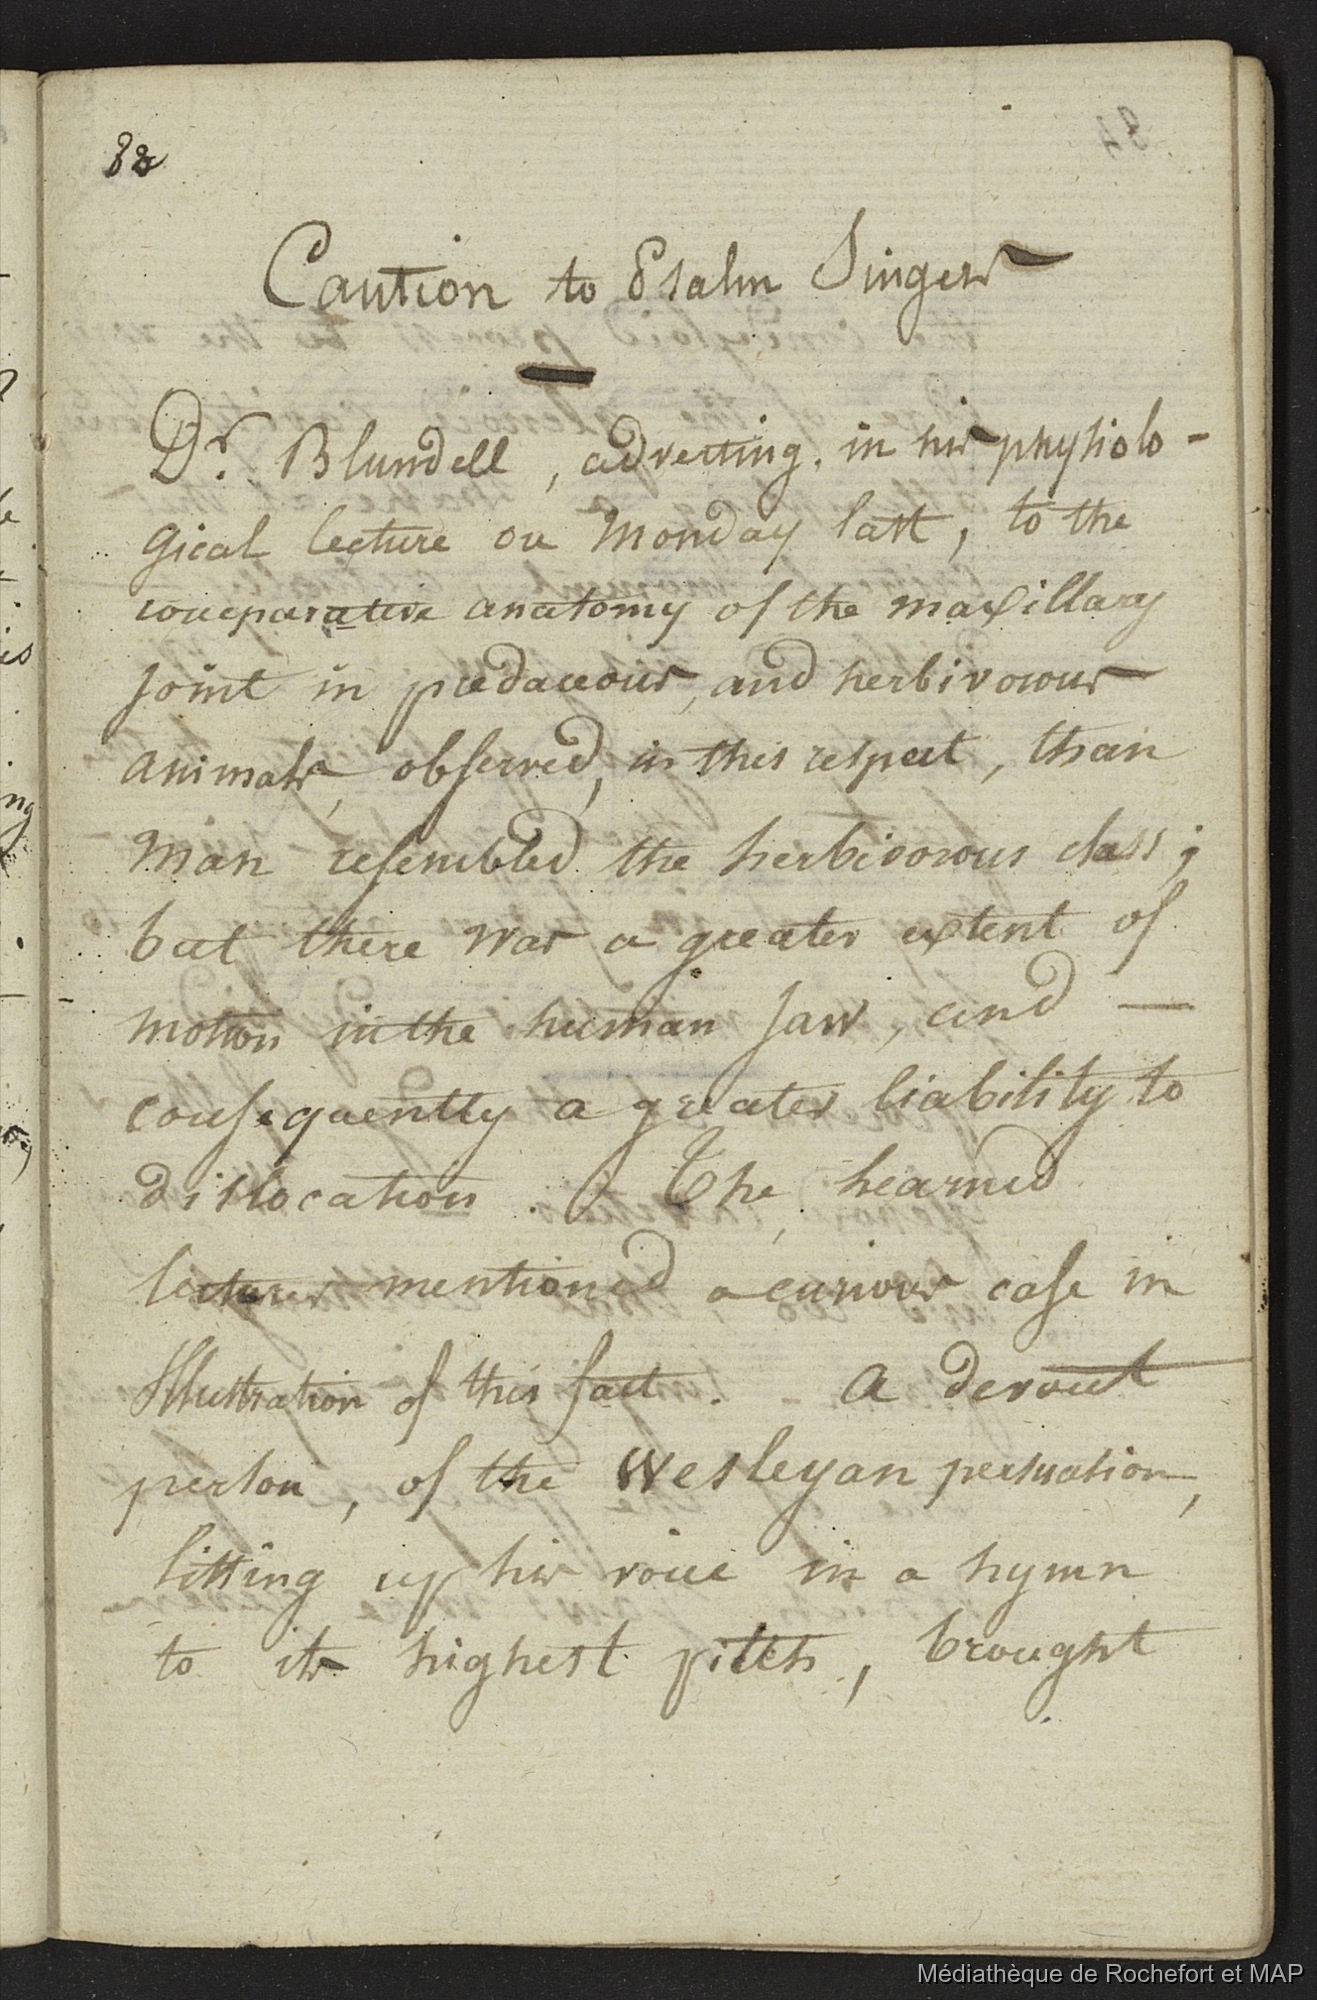 88
Caution to Psalm Singers
Dr. Blundell, adverting, in his physiolo-
gical lecture on Monday last, to the
comparative anatomy of the maxillary
joint in predaceous, and herbivorous
animals, observed, in this respect, than
man resembled the herbivorous class;
but there was a greater extent of
motion in the human jaw, and —
consequently a greater liability to
dislocation. The learned
lecturer mentioned a curious case in
illustration of this fact. A devout
person, of the Wesleyan persuasion,
litting up his voice in a hymn
to its highest pitch, brought
Médiathèque de Rochefort et MAP